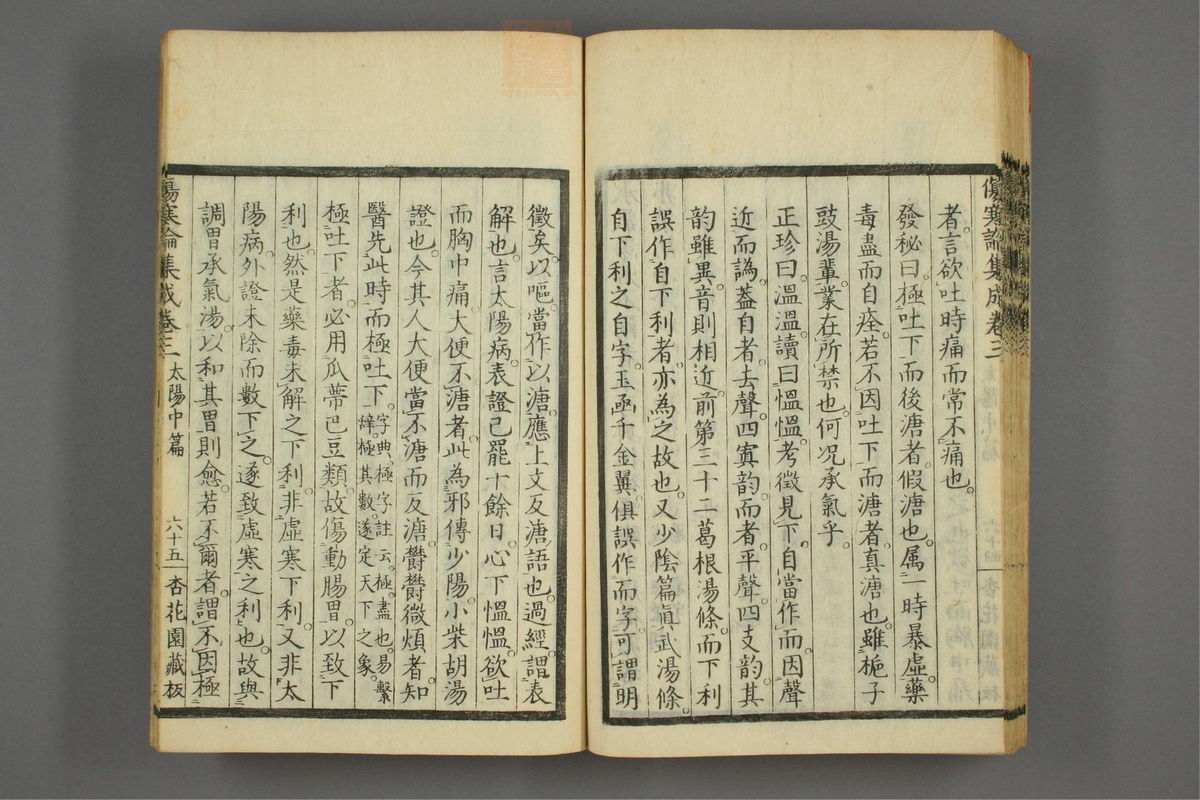 傷寒論集成卷三
者。言欲吐時痛而常不痛也。
發秘曰。極吐下而後溏者假溏也。属一時暴虛。藥
毒盡而自痊。若不因吐下而溏者。真溏也。雖梔子
豉湯輩。業在所禁也。何況承氣乎。
正珍曰。溫溫。讀曰慍慍。考徵見下。自當作而。因聲
近而譌。蓋自者。去聲四寘韵。而者。平聲四支韵。其
韵雖異。音則相近。前第三十二葛根湯條。而下利
誤作自下利者。亦為之故也。又少陰篇眞武湯條。
自下利之自字。玉函千金翼。俱誤作而字。可謂明
徵矣。以嘔。當作以溏。應上文反溏語也。過經。謂表
解也。言太陽病。表證已罷十餘日。心下慍慍。欲吐
而胸中痛。大便不溏者。此為邪傳少陽。小柴胡湯
證也。今其人大便當不溏而反溏。欝欝微煩者。知
醫先此時而極吐下。字典。極字註云。極。盡也。易繫
辭。極其數。遂定天下之象。
極吐下者。必用瓜蔕巴豆類。故傷動腸胃。以致下
利也。然是藥毒未解之下利。非虛寒下利。又非太
陽病。外證未除而數下之。遂致虛寒之利也。故與
調胃承氣湯。以和其胃則愈。若不爾者。謂不因極
傷寒論集成卷三 太陽中篇 六十五 杏花園藏板